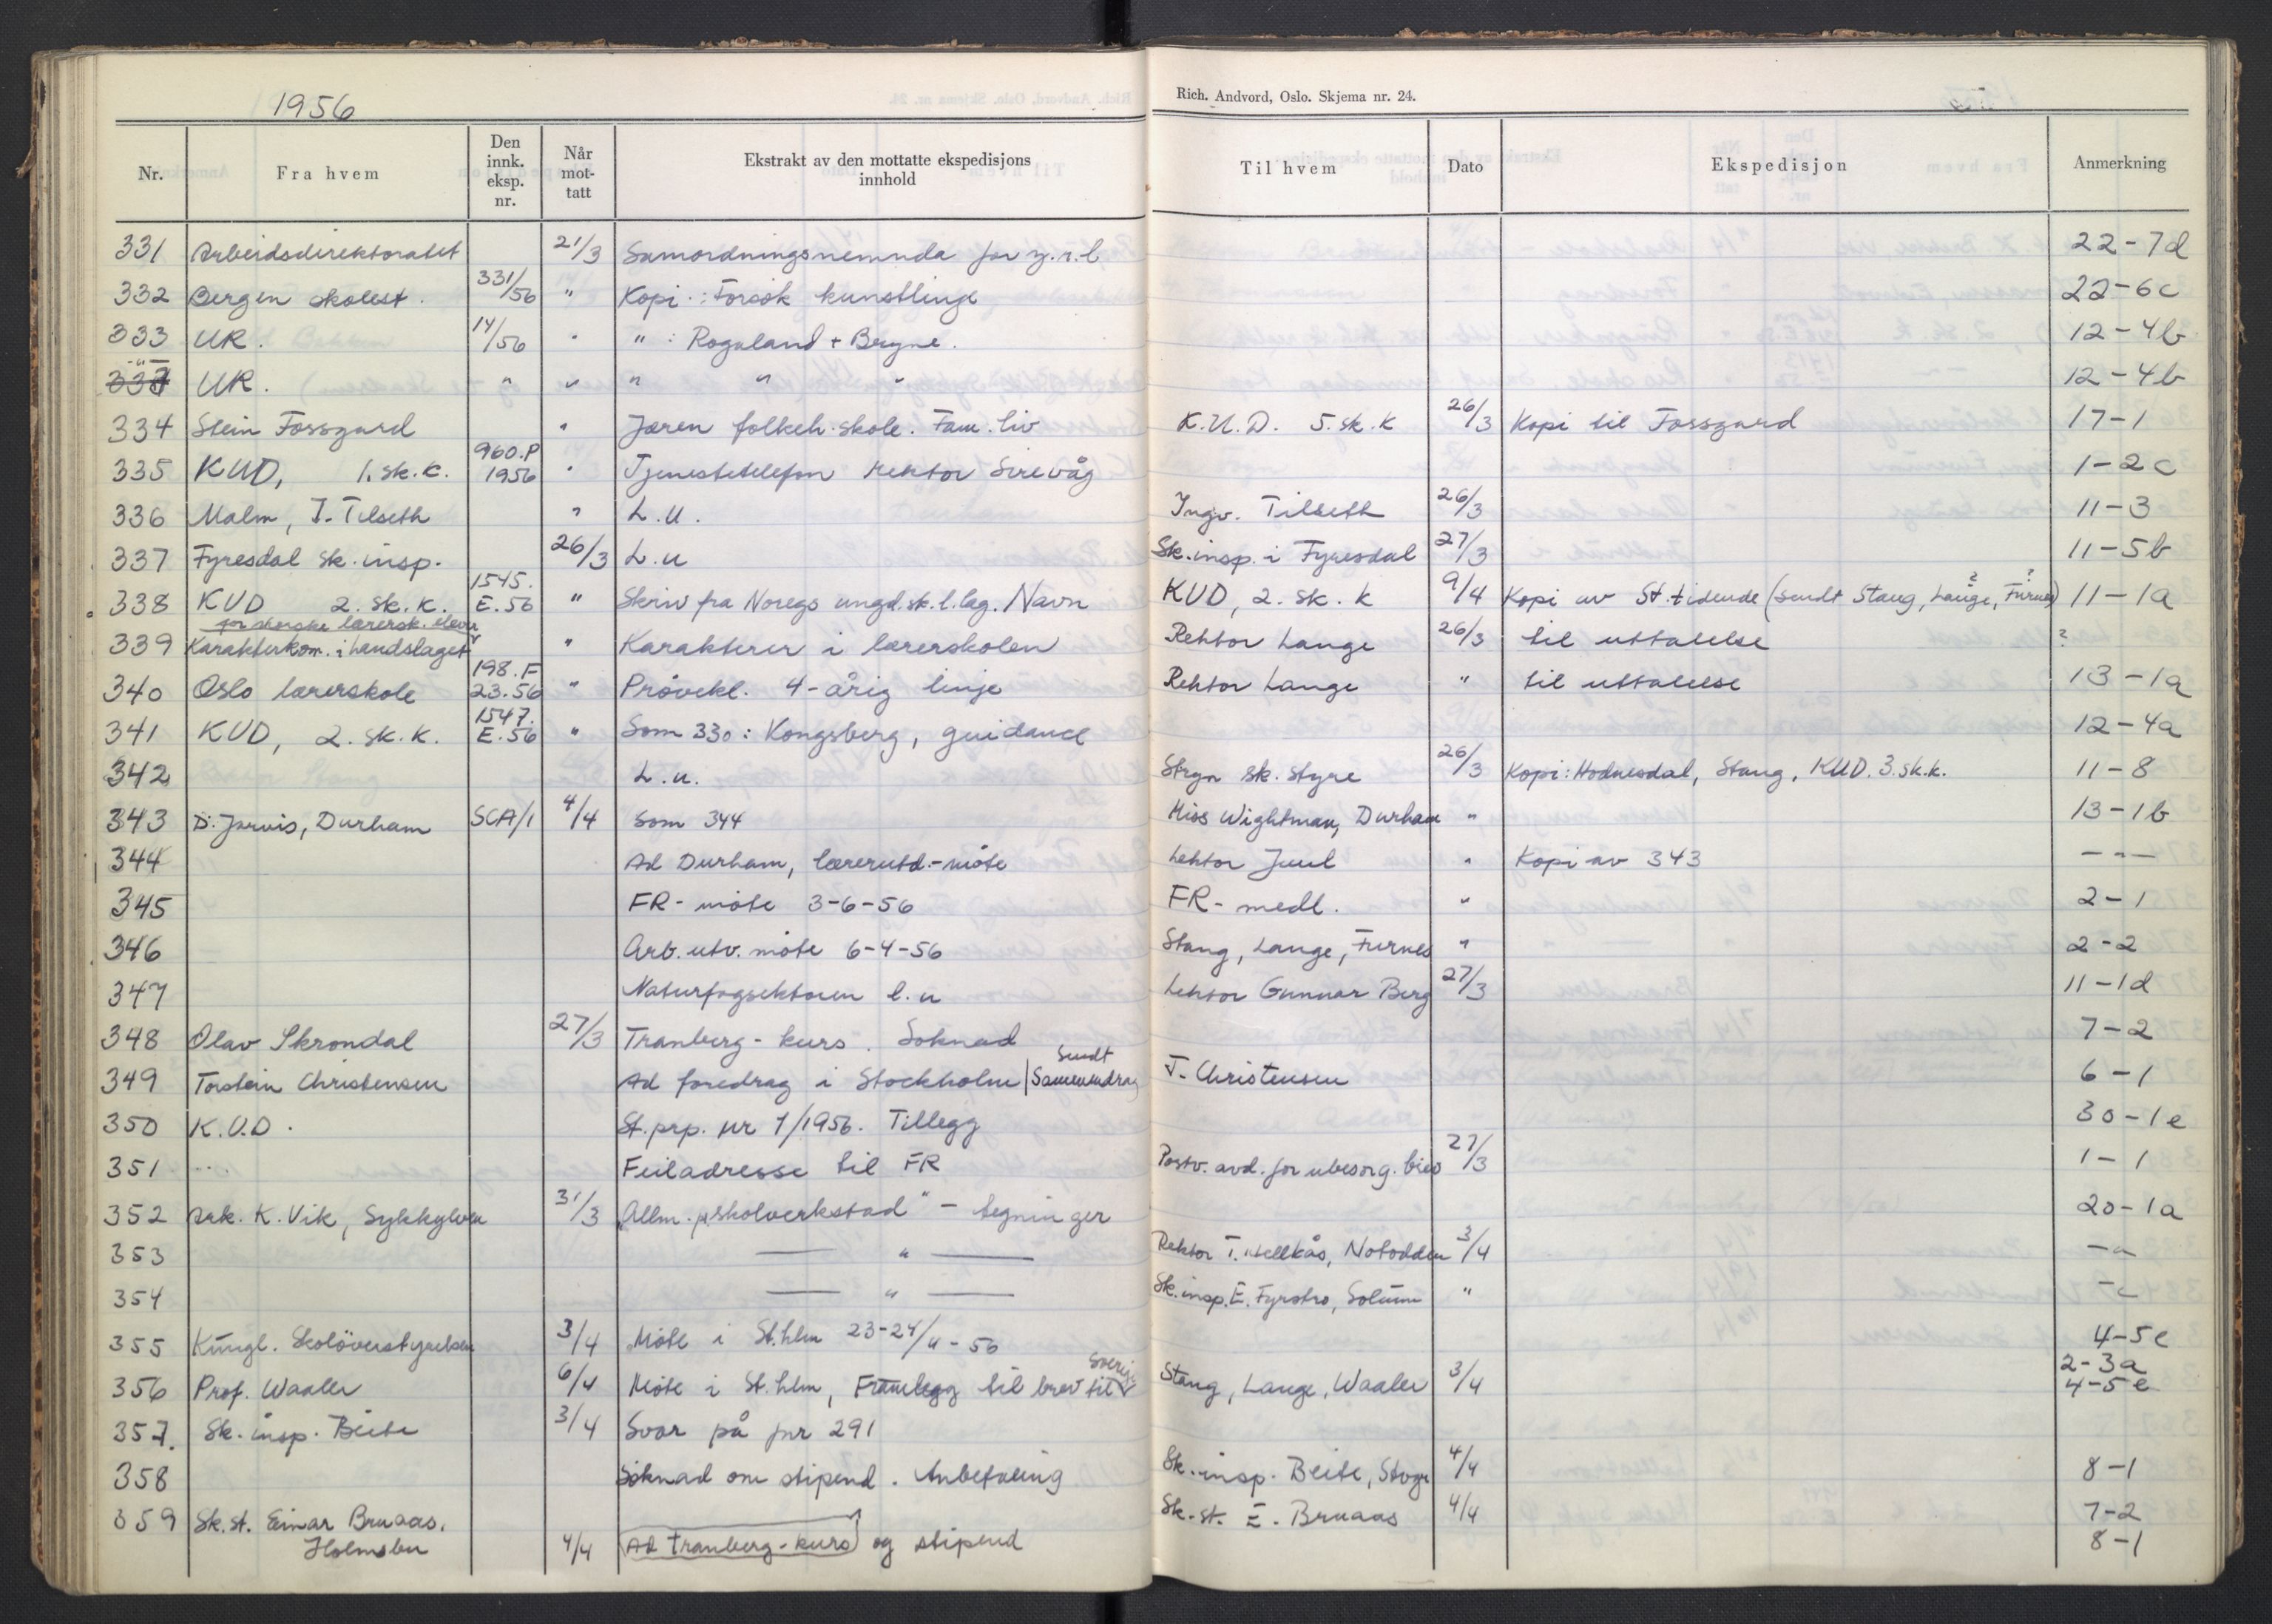 1956
Rich. Andvord, Oslo. Skjema nr. 24.
Nr. Fra hvem Den innk. eksp. nr. Når mot- tatt Ekstrakt av den mottatte ekspedisjons innhold Til hvem Dato Ekspedisjon Anmerkning
331 Arbeidsdirektoratet 21/3 Samordningsnemnda for y.r.l 22-7d
332 Bergen skolest. 331/56 " Kopi: Forsök kunstlinje 22-6c
333 UR. 14/56 " " : Rogaland + Bryne. 12-4b
-"- UR. " " " " " 12-4b
334 Stein Fossgard " Jæren folkeh.skole. Fam.liv K.U.D. 5.sk.k 26/3 Kopi til Fossgard 17-1
335 KUD, 1.sk.k. 960.P 1956 " Tjenestetelefon rektor Sirevåg 1-2c
336 Malm, I. Tilseth " L.u. Ingv. Tilseth 26/3 11-3
337 Fyresdal sk.insp. 26/3 L.u Sk.insp. i Fyresdal 27/3 11-5b
338 KUD 2.sk.k. 1545. E.56 " Skriv fra Noregs ungd.sk.l.lag. Navn KUD, 2.sk.k 9/4 Kopi av St.tidende (sendt Stang, Lange, Furnes) 11-1a
339 Karakterkom. i Landslaget for norske lærersk. elever " Karakterer i lærerskolen Rektor Lange 26/3 til uttalelse ?
340 Oslo lærerskole 198.F 23.56 " Prövekl. 4-årig linje Rektor Lange " til uttalelse 13-1a
341 KUD, 2.sk.k. 1547. E.56 " Som 330: Kongsberg, guidance 12-4a
342 L.u. Stryn sk.styre 26/3 Kopi: Hodnesdal, Stang, KUD.3.sk.k. 11-8
343 D. Jarvis, Durham SCA/1 4/4 Som 344 Miss Wightman, Durham " 13-1b
344 Ad Durham, lærerutd.-möte Lektor Juul " Kopi av 343 -"-
345 FR-möte 3-6-56 FR-medl. " 2-1
346 Arb.utv. möte 6-4-56 Stang, Lange, Furnes " 2-2
347 Naturfagsektoren l.u Lektor Gunnar Berg 27/3 11-1d
348 Olav Skrondal 27/3 Tranberg-kurs. Soknad 7-2
349 Torstein Christensen Ad foredrag i Stockholm | Sendt Sammendrag T. Christensen 6-1
350 K.U.D. St.prp. nr 1/1956. Tillegg 30-1e
351 ... Feiladresse til FR Postv. avd. for ubesorg. brev 27/3 1-1
352 Ark. K. Vik, Sykkylven 31/3 Allm. "skolverkstad" - tegninger 20-1a
353 — " — Rektor T. , Notodden 3/4 -"
354 — " — Sk.insp. E. Fyrstro, Solum " -"
355 Kungl. Skolöverstyrelsen 3/4 Möte i St.hlm 23-24/4-56 4-5e
356 Prof. Waaler 6/4 Möte i St.hlm, Framlegg til brev til Sverige Stang, Lange, Waaler 3/4 2-3a 4-5e
357. Sk.insp. Beite 3/4 Svar på jnr 291
358 Söknad om stipend. Anbefaling Sk.insp. Beite, 4/4 8-1
359 Sk.st. Einar Bruaas, Holmsbu 4/4 Ad Tranberg-kurs og stipend Sk.st. E. Bruaas 4/4 7-2 8-1